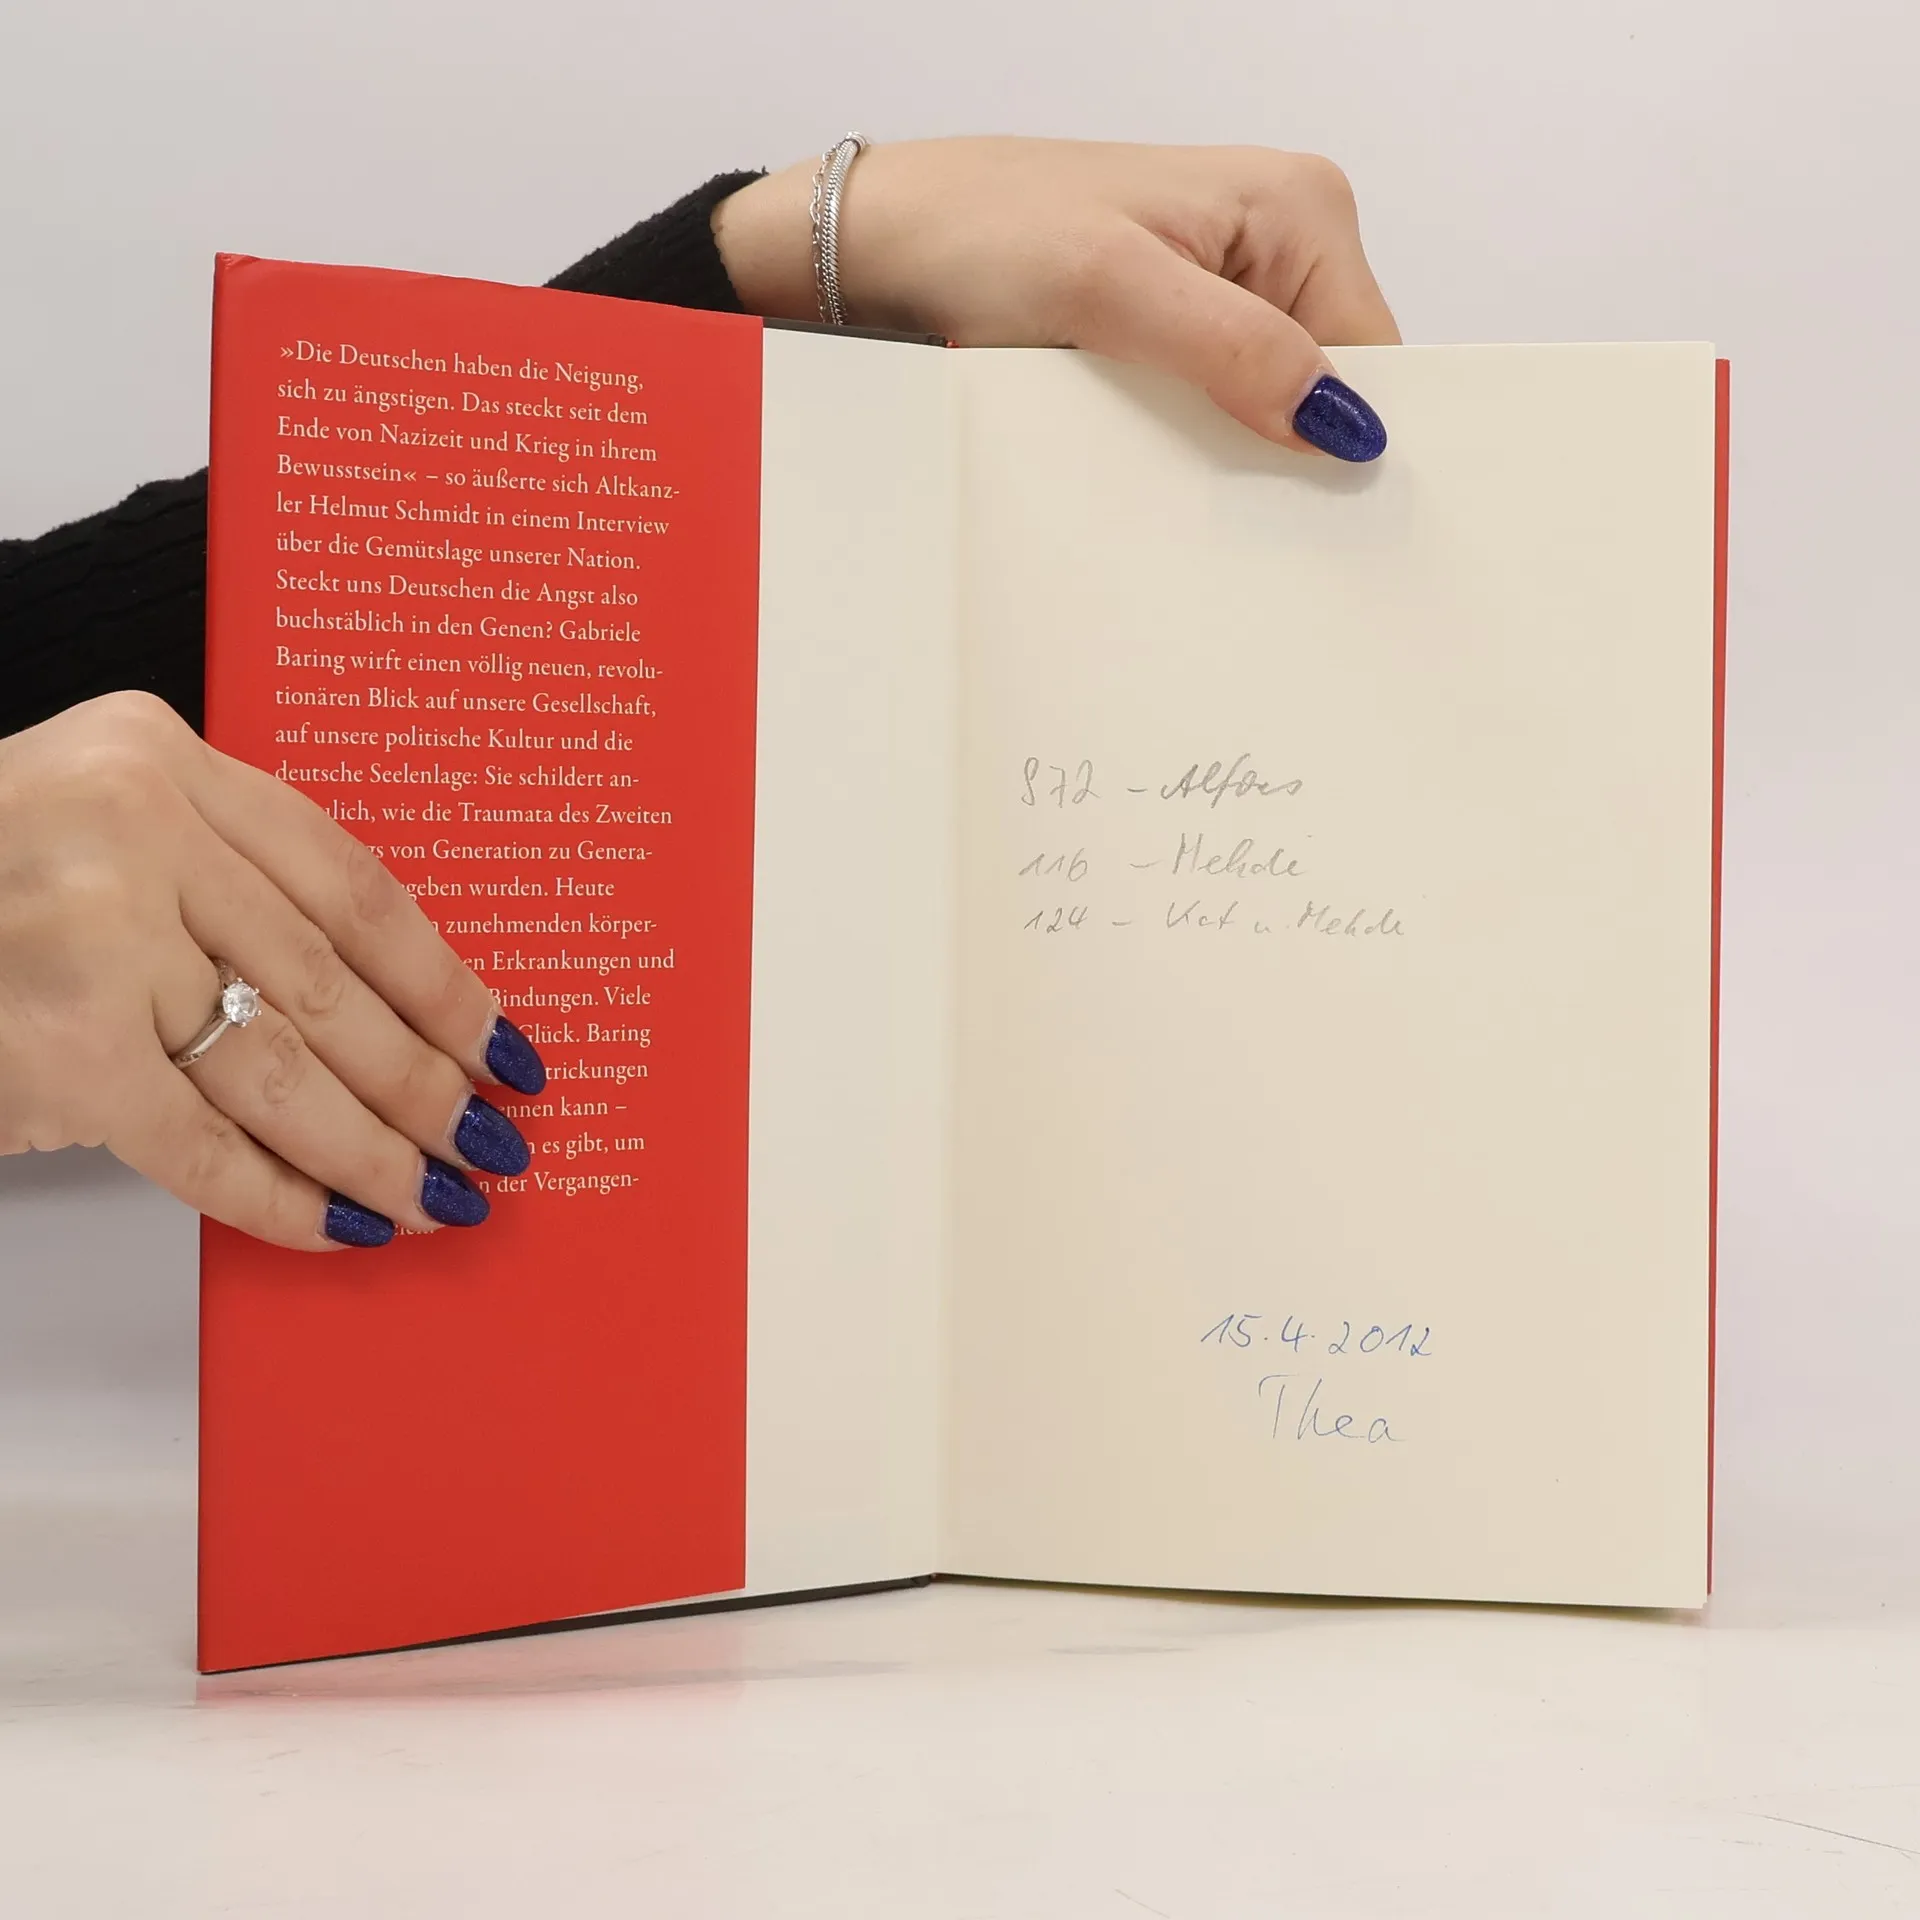 »Die Deutschen haben die Neigung,
sich zu ängstigen. Das steckt seit dem
Ende von Nazizeit und Krieg in ihrem
Bewusstsein« – so äußerte sich Altkanz-
ler Helmut Schmidt in einem Interview
über die Gemütslage unserer Nation.
Steckt uns Deutschen die Angst also
buchstäblich in den Genen? Gabriele
Baring wirft einen völlig neuen, revolu-
tionären Blick auf unsere Gesellschaft,
auf unsere politische Kultur und die
deutsche Seelenlage: Sie schildert an-
ulich, wie die Traumata des Zweiten
gs von Generation zu Genera-
geben wurden. Heute
zunehmenden körper-
en Erkrankungen und
Bindungen. Viele
Glück. Baring
trickungen
ennen kann –
es gibt, um
n der Vergangen-
872 – Alfons
116 – Mehdi
124 – Kat u. Mehdi
15.4.2012
Thea